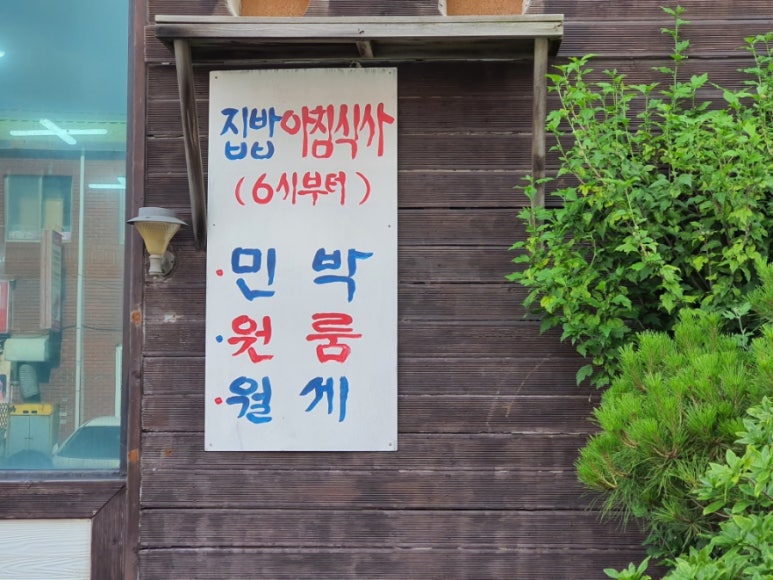 집밥 아침식사
(6시부터)
·민 박
·원 룸
·월 세